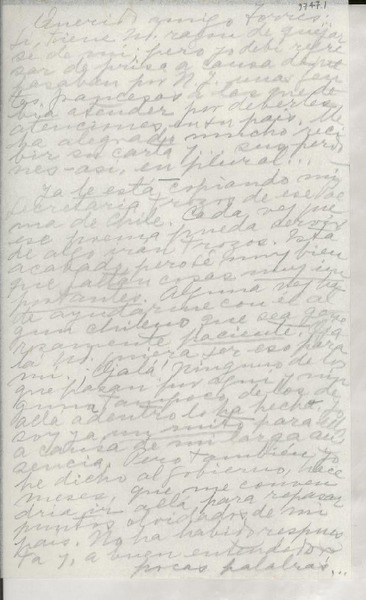 37471
Querido amigo Torres:
Sí, tiene Ud. razón de quejar
se de mí; pero yo debí regre
sar de prisa a causa de que
pasaban por N.Y. unas gen
tes francesas a las que de
bía atender por deberles
atenciones en su país. Me
ha alegrado mucho reci
bir su carta y sus perdo
nes - así, en plural...
Ya le está copiando mi
secretaria trozos de ese Poe
ma de Chile. Cada vez que
ese poema pueda servir
de algo irán trozos. Está
acabado, pero sé muy bien
que faltan cosas muy im
portantes. Alguna vez he
de ayudarme con el al
gún chileno que sea gene
rosamente paciente. Oja
lá Ud. quiera ser eso para
mí. ¡Ojalá! Ninguno de los
que pasan por aquí y nin
guno tampoco de los de
allá adentro lo ha hecho. Yo
soy ya un mito para ellos
a causa de mi larga au
sencia. Pero también yo
he dicho al gobierno, hace
meses, que me conven
dría ir allá, para repasar
puntos olvidados de mi
país. No ha habido respues
ta y, a buen entendedor
pocas palabras...